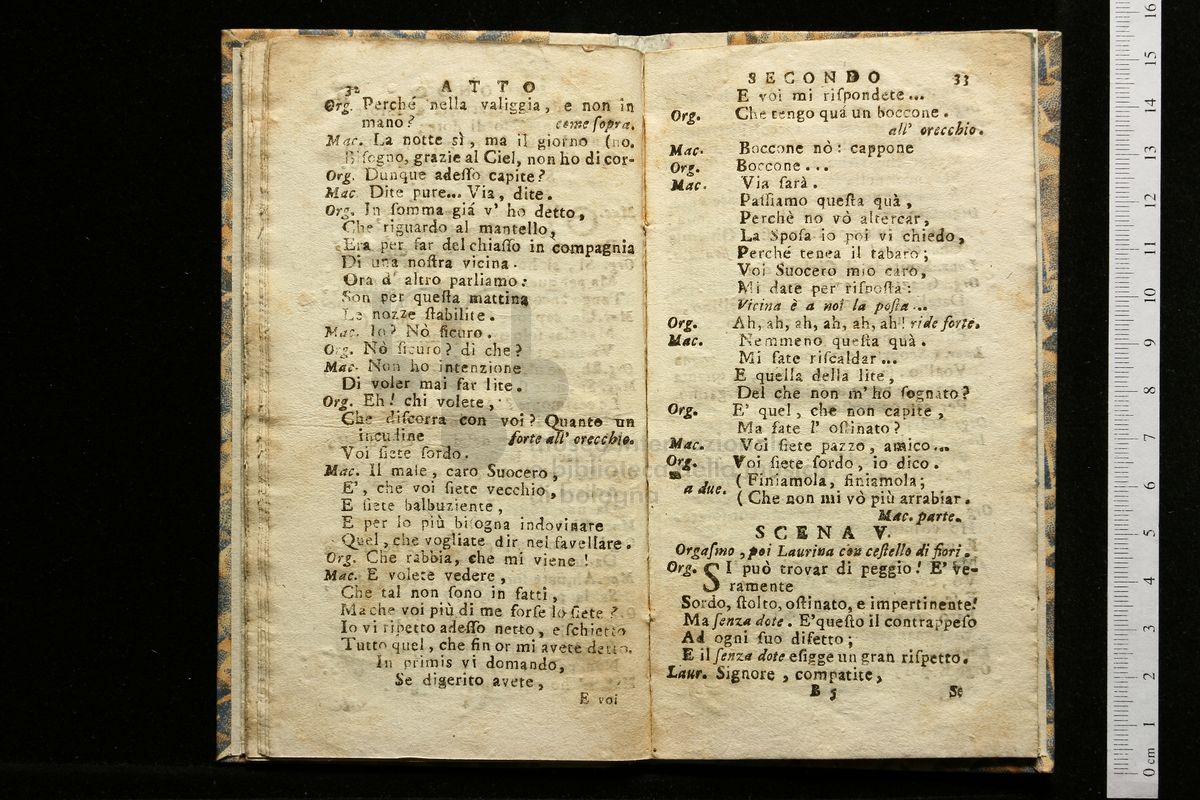 32 ATTO
Org. Perché nella valiggia, e non in
mano? come ſopra.
Mac. La notte sì, ma il giorno (no.
Biſogno, grazie al Ciel, non ho di cor-
Org. Dunque adeſſo capite?
Mac. Dite pure... Via, dite.
Org. In ſomma giá v' ho detto,
Che riguardo al mantello,
Era per far del chiaſſo in compagnia
Di una noſtra vicina.
Ora d' altro parliamo:
Son per queſta mattina
Le nozze ſtabilite.
Mac. Io? Nò ſicuro.
Org. Nò ſicuro? di che?
Mac. Non ho intenzione
Di voler mai far lite.
Org. Eh! chi volete,
Che diſcorra con voi? Quanto un
incudine forte all' orecchio.
Voi ſiete ſordo.
Mac. Il male, caro Suocero,
E', che voi ſiete vecchio,
E ſiete balbuziente,
E per lo più biſogna indovinare
Quel, che vogliate dir nel favellare.
Org. Che rabbia, che mi viene!
Mac. E volete vedere,
Che tal non ſono in fatti,
Ma che voi più di me forſe lo ſiete?
Io vi ripetto adeſſo netto, e ſchietto
Tutto quel, che fin or mi avete detto.
In primis vi domando,
Se digerito avete,
E voi
SECONDO 33
E voi mi riſpondete...
Org. Che tengo quá un boccone.
all' orecchio.
Mac. Boccone nò: cappone
Org. Boccone...
Mac. Via ſarà.
Paſſiamo queſta quà,
Perchè no vò altercar,
La Spoſa io poi vi chiedo,
Perché tenea il tabaro;
Voi Suocero mio caro,
Mi date per riſpoſta:
Vicina è a noi la poſta...
Org. Ah, ah, ah, ah, ah, ah! ride forte.
Mac. Nemmeno queſta quà.
Mi fate riſcaldar...
E quella della lite,
Del che non m' ho ſognato?
Org. E' quel, che non capite,
Ma fate l' oſtinato?
Mac. Voi ſiete pazzo, amico...
Org. Voi ſiete ſordo, io dico.
a due. (Finiamola, finiamola;
(Che non mi vò più arrabiar.
Mac. parte.
SCENA V.
Orgaſmo, poi Laurina con ceſtello di fiori.
Org. SI può trovar di peggio! E' ve-
ramente
Sordo, ſtolto, oſtinato, e impertinente!
Ma ſenza dote. E' queſto il contrappeſo
Ad ogni ſuo difetto;
E il ſenza dote eſigge un gran riſpetto.
Laur. Signore, compatite,
B 5 Se